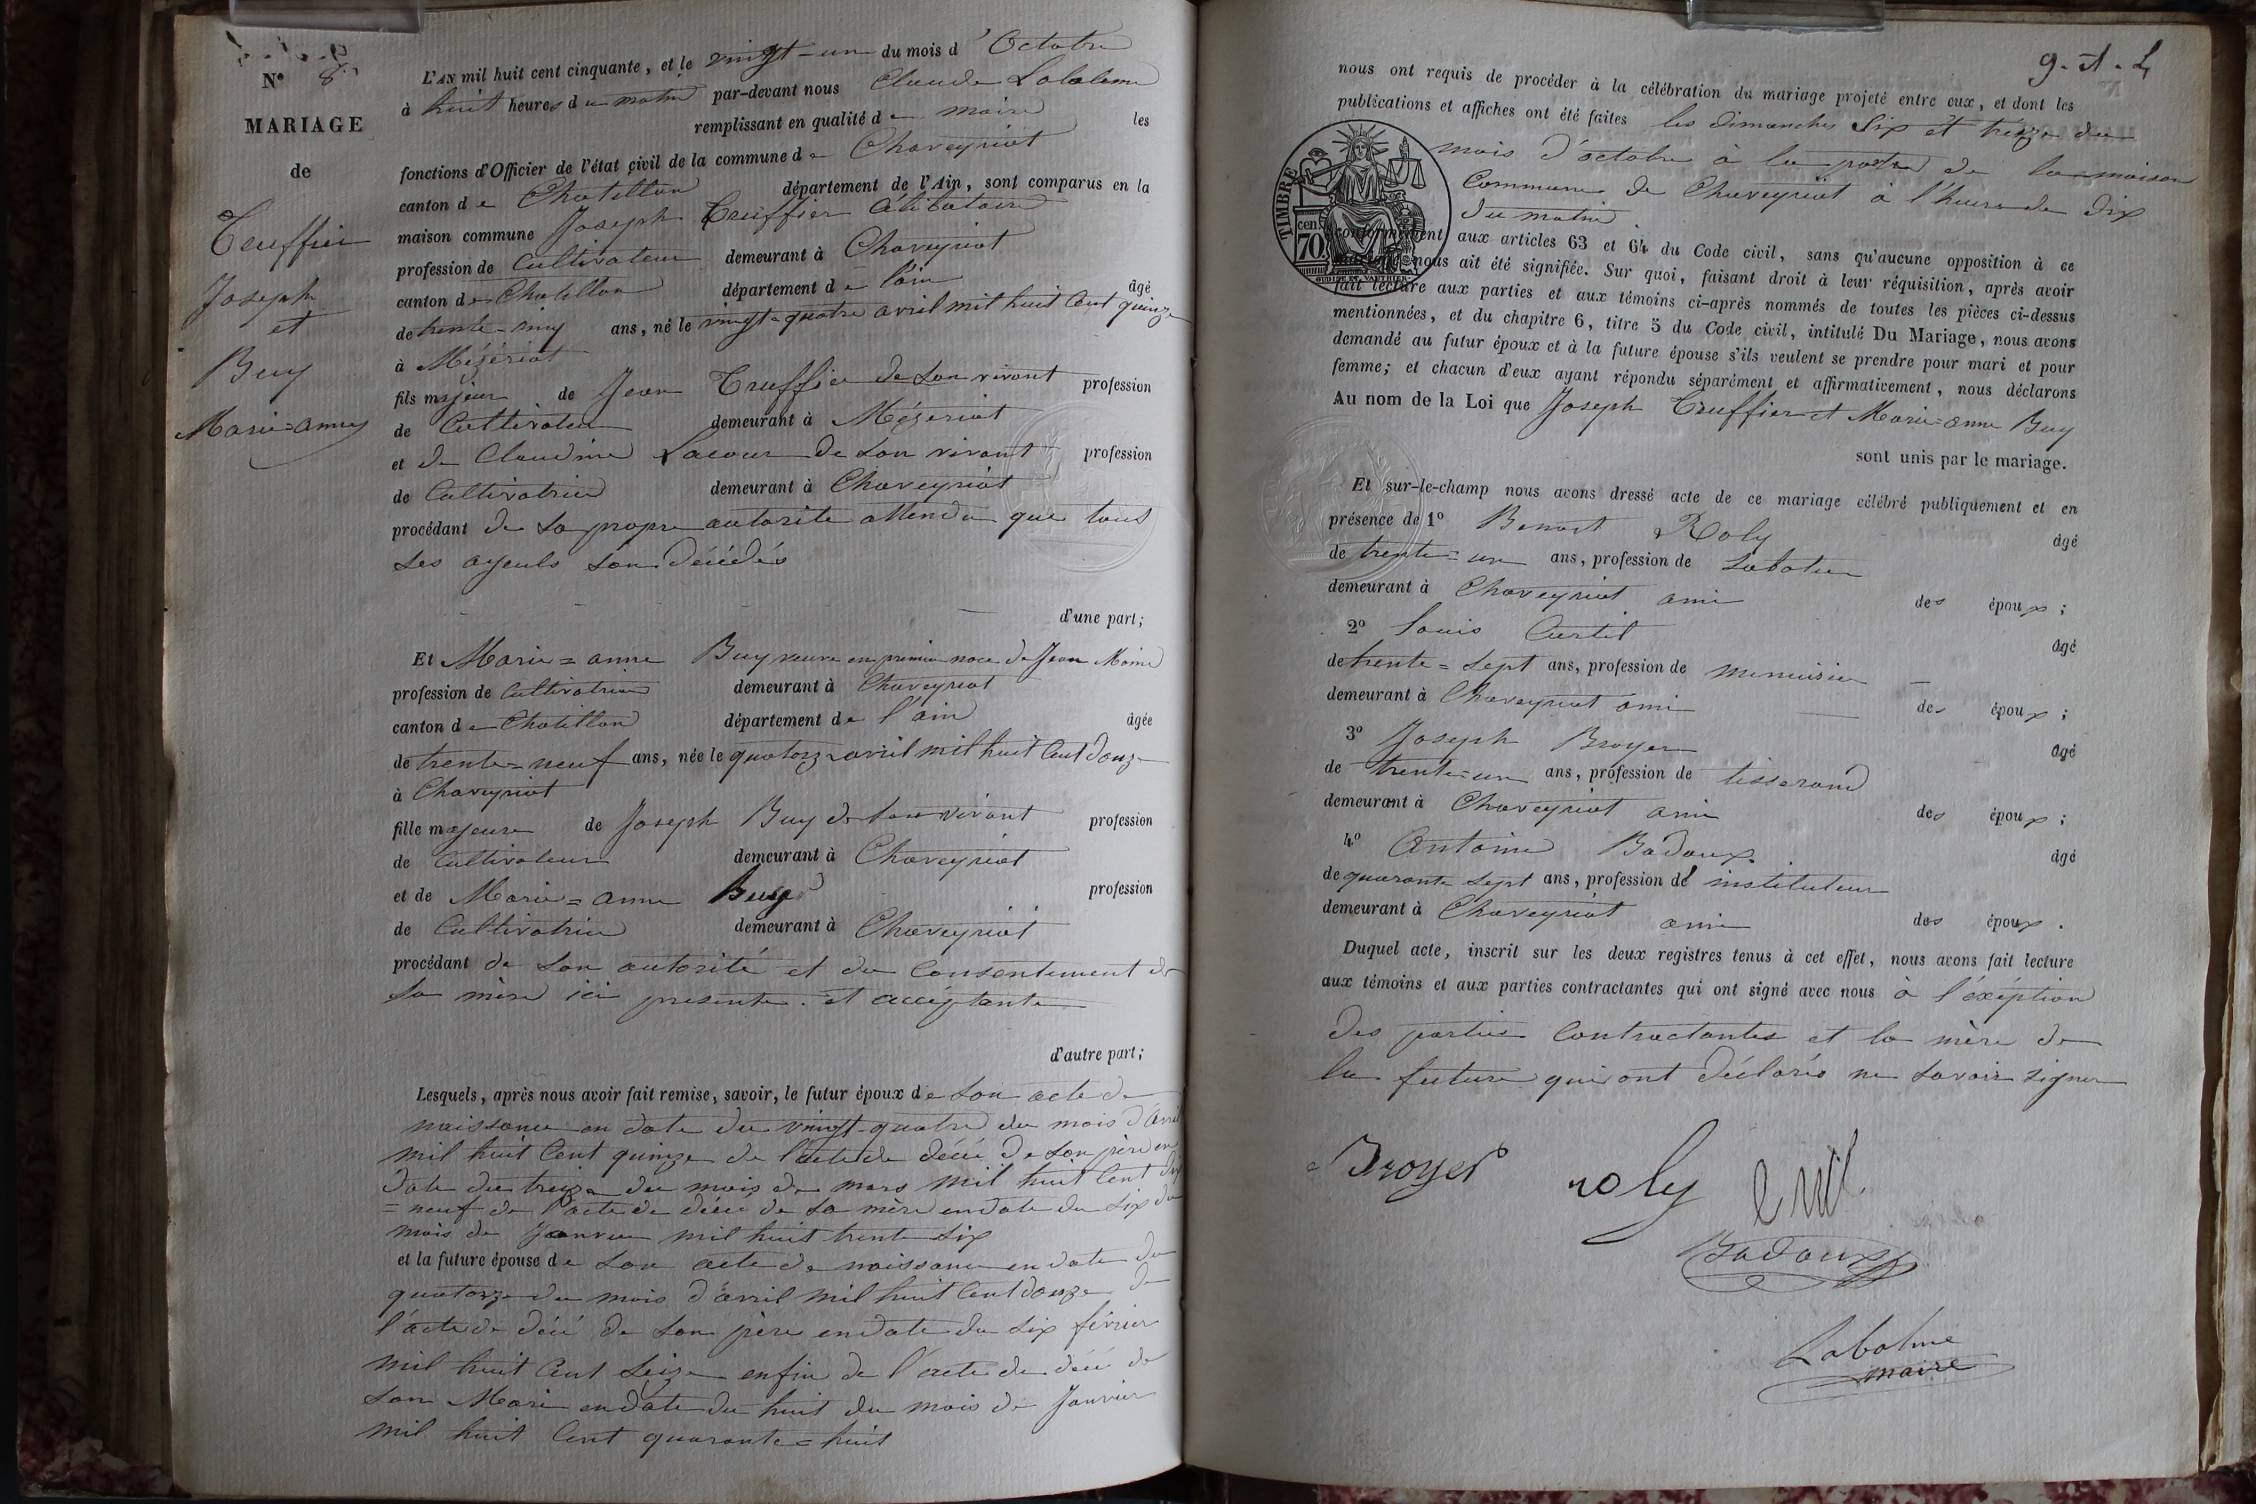 N° 8
MARIAGE
de
Truffier
Joseph
et
Buy
Marie=anne
L'AN mil huit cent cinquante, et le vingt-un du mois d'Octobre
à huit heures du matin par-devant nous Claude Labalme
remplissant en qualité de maire les
fonctions d'Officier de l'état civil de la commune de Chaveyriat
canton de Chatillon département de l'Ain, sont comparus en la
maison commune Joseph Truffier célibataire
profession de Cultivateur demeurant à Chaveyriat
canton de Chatillon département de l'ain âgé
de trente-cinq ans, né le vingt-quatre avril mil huit Cent quinze
à Mézériat
fils majeur de Jean Truffier de son vivant profession
de Cultivateur demeurant à Mézériat
et de Claudine Lacour de son vivant profession
de Cultivatrice demeurant à Chaveyriat
procédant de sa propre autorité attendu que tous
ses ayeuls son décédés
d'une part;
Et Marie=anne Buy veuve en premier noce de Jean Moine
profession de Cultivatrice demeurant à Chaveyriat
canton de Chatillon département de l'ain âgée
de trente=neuf ans, née le quatorze avril mil huit Cent douze
à Chaveyriat
fille majeure de Joseph Buy de son vivant profession
de Cultivateur demeurant à Chaveyriat
et de Marie=anne Buy profession
de Cultivatrice demeurant à Chaveyriat
procédant de son autorité et du Consentement de
sa mère ici presente et accéptante
d'autre part;
Lesquels, après nous avoir fait remise, savoir, le futur époux de son acte de
naissance en date du vingt-quatre du mois d'avril
mil huit Cent quinze de l'acte de décé de son père en
date du treize du mois de mars mil huit Cent dix
=neuf de l'acte de décé de sa mère en date du six du
mois de Janvier mil huit trente six
et la future épouse de son acte de naissance en date du
quatorze du mois d'avril mil huit Cent douze de
l'acte de décé de son père en date du six février
mil huit Cent seize enfin de l'acte de décé de
son Mari en date du huit du mois de Janvier
mil huit Cent quarante=huit
nous ont requis de procéder à la célébration du mariage projeté entre eux, et dont les
publications et affiches ont été faites les dimanches Six et treize du
mois d'octobre à la porte de la maison
Commune de Chaveyriat à l'heure de dix
du matin
TIMBRE
70 cen.
conformément aux articles 63 et 64 du Code civil, sans qu'aucune opposition à ce
mariage nous ait été signifiée. Sur quoi, faisant droit à leur réquisition, après avoir
fait lecture aux parties et aux témoins ci-après nommés de toutes les pièces ci-dessus
mentionnées, et du chapitre 6, titre 5 du Code civil, intitulé Du Mariage, nous avons
demandé au futur époux et à la future épouse s'ils veulent se prendre pour mari et pour
femme; et chacun d'eux ayant répondu séparément et affirmativement, nous déclarons
Au nom de la Loi que Joseph Truffier et Marie=anne Buy
sont unis par le mariage.
Et sur-le-champ nous avons dressé acte de ce mariage célébré publiquement et en
présence de 1° Benoit Roly âgé
de trente=un ans, profession de Sabotier
demeurant à Chaveyriat ami des époux;
2° Louis Curtil âgé
de trente=sept ans, profession de menuisier
demeurant à Chaveyriat ami des époux;
3° Joseph Broyer âgé
de trente=un ans, profession de tisserand
demeurant à Chaveyriat ami des époux;
4° Antoine Badoux âgé
de quarante sept ans, profession d'instituteur
demeurant à Chaveyriat ami des époux.
Duquel acte, inscrit sur les deux registres tenus à cet effet, nous avons fait lecture
aux témoins et aux parties contractantes qui ont signé avec nous à l'éxeption
des parties Contractantes et la mère de
la future qui ont déclarés ne savoir signer
Broyer
roly
Badoux
Labalme
maire